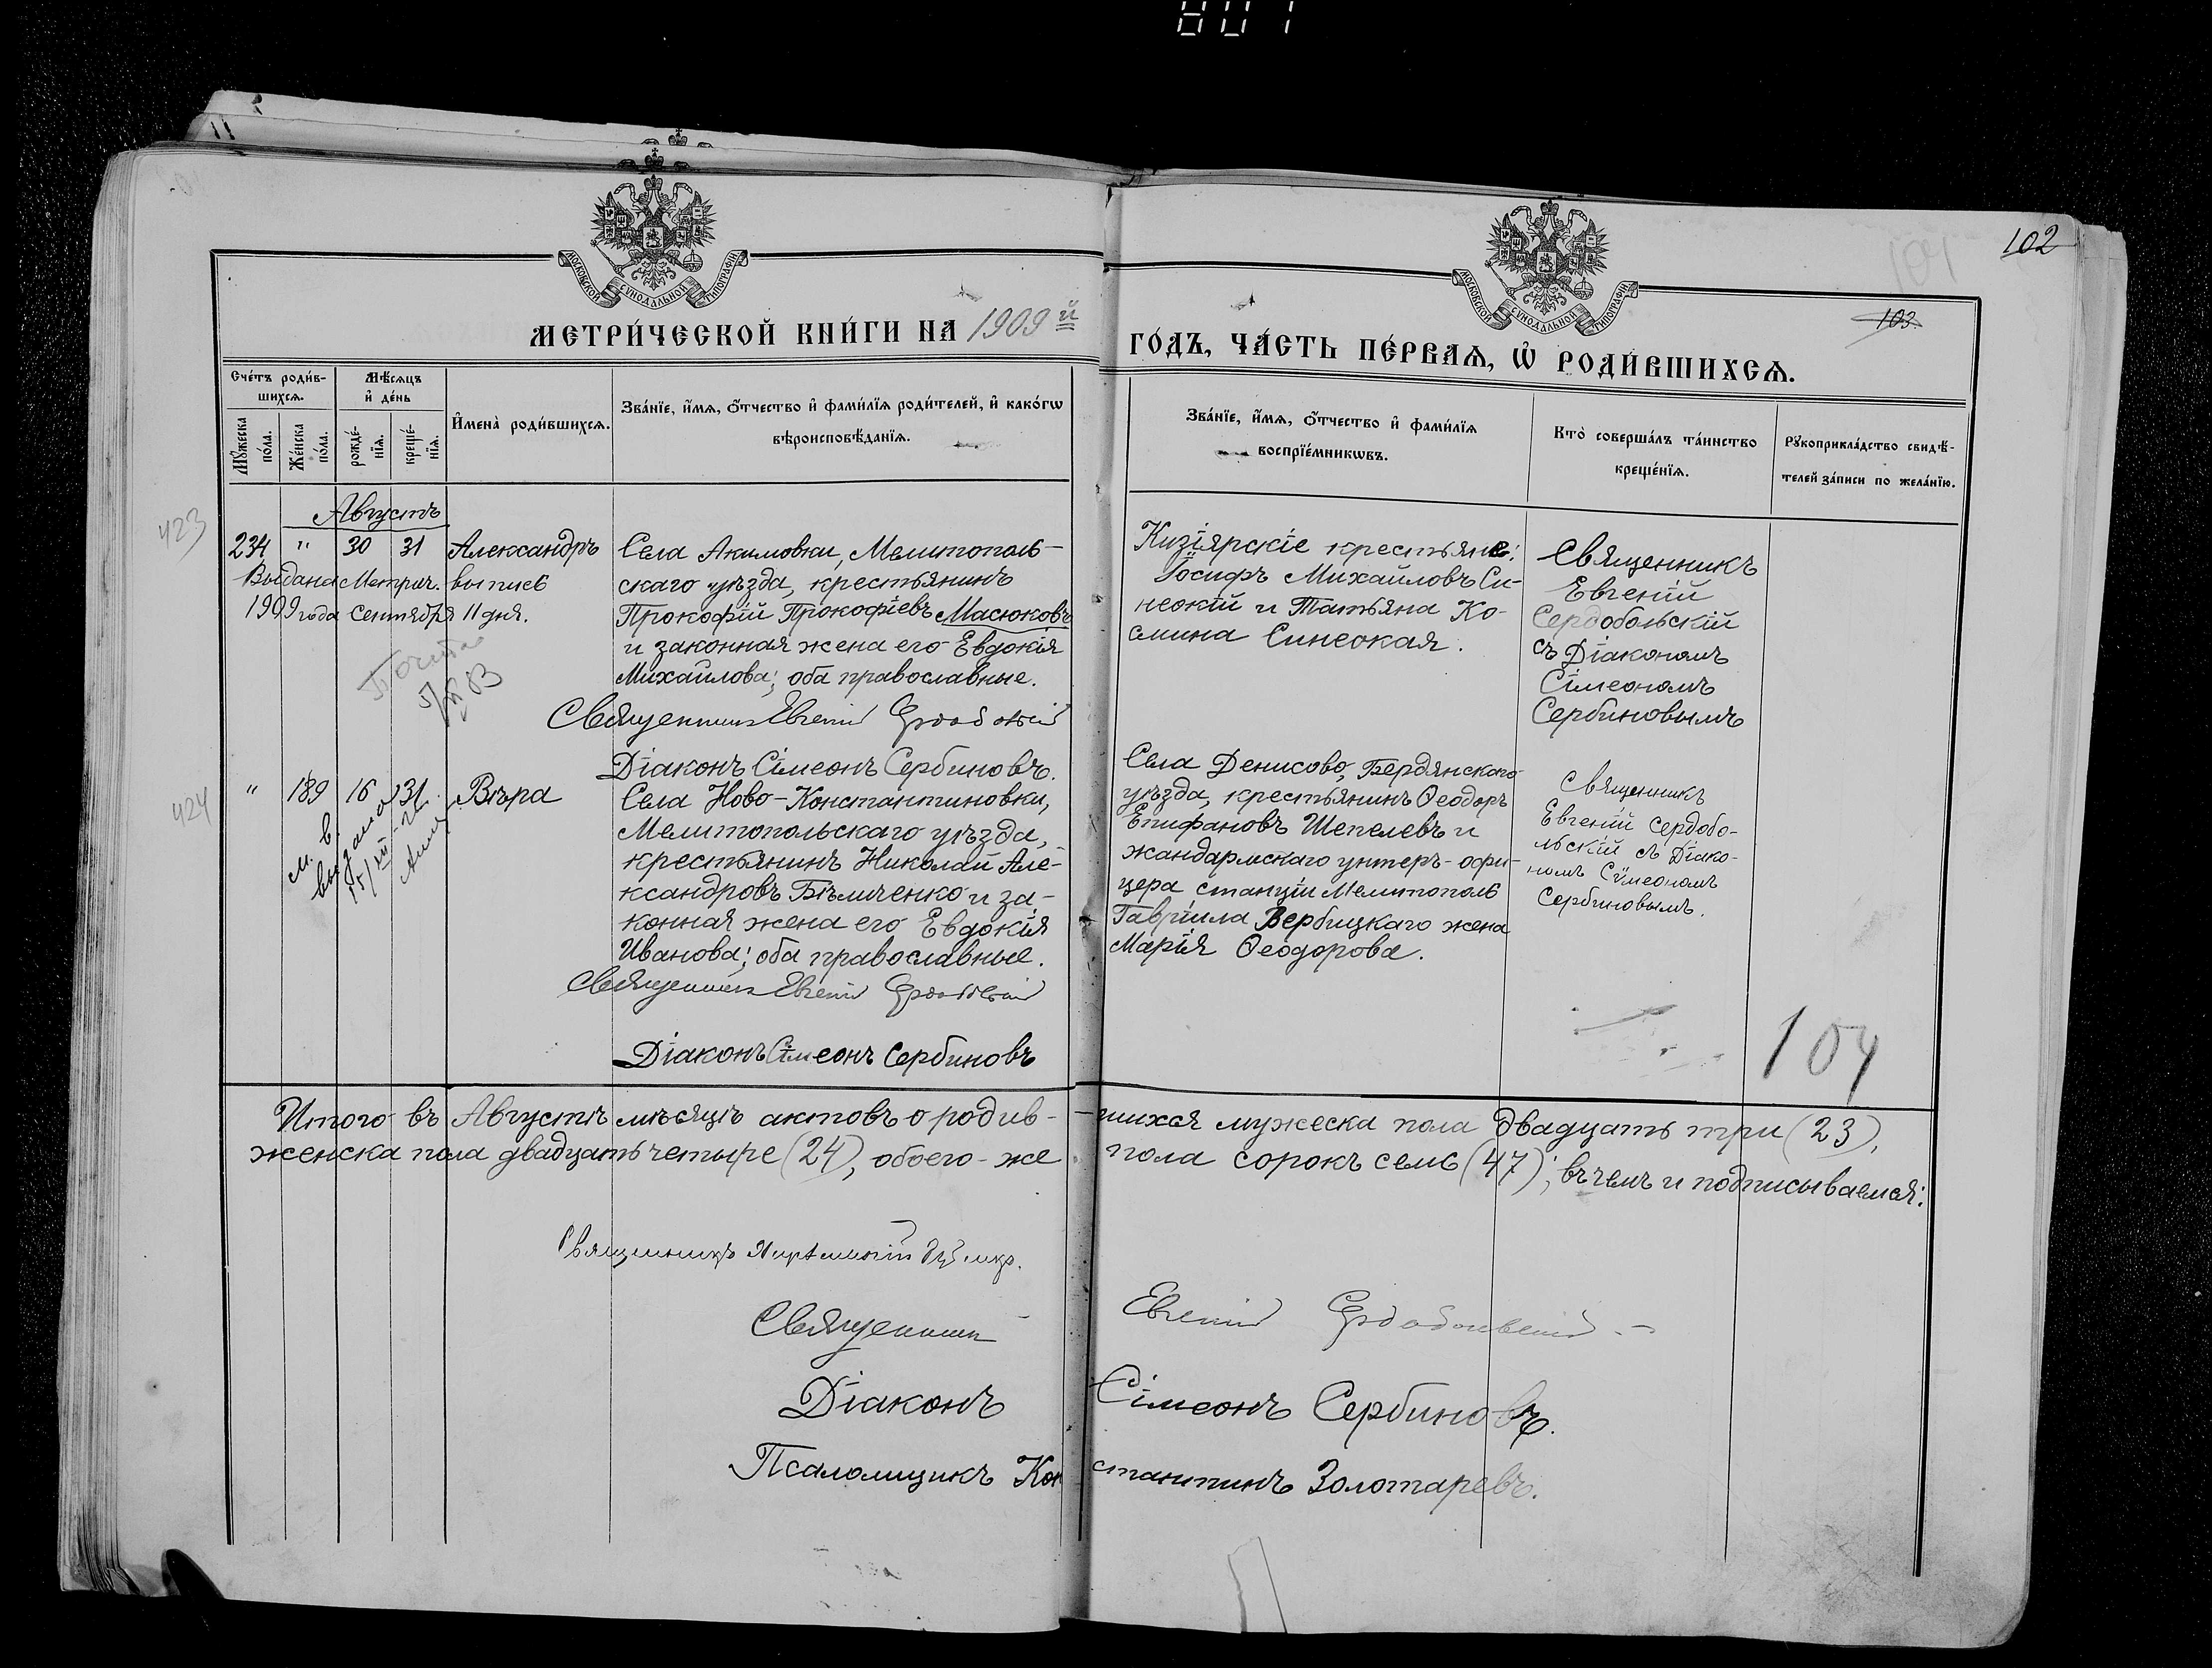 801
102
104
103.
МОСКОВСКОЙ СѴНОДАЛЬНОЙ ТИПОГРАФІИ
МОСКОВСКОЙ СѴНОДАЛЬНОЙ ТИПОГРАФІИ
МЕТРИ́ЧЕСКОЙ КНИ́ГИ НА 1909й
ГО́ДЪ, ЧА́СТЬ ПЕ́РВАѦ, Ѡ҆ РОДИ́ВШИХСѦ.
Сче́тъ роди́в-
шихсѧ.
Мѣ́сѧцъ
и҆ де́нь
Мꙋ́жеска
по́ла.
Же́нска
по́ла.
рожде́-
нїѧ.
креще́-
нїѧ.
И҆мена̀ роди́вшихсѧ.
Зва́нїе, и҆́мѧ, ѻ҆́тчество и҆ фами́лїѧ роди́телей, и҆ како́гѡ
вѣроисповѣ́данїѧ.
Зва́нїе, и҆́мѧ, ѻ҆́тчество и҆ фами́лїѧ
воспрїе́мникѡвъ.
Кто̀ соверша́лъ та́инство
креще́нїѧ.
Рꙋкоприкла́дство свидѣ́-
телей за́писи по жела́нїю.
Августъ
423
234 " 30 31 Александръ
Выдана Метрич. выпись
1909 года Сентября 11 дня.
Села Акимовки, Мелитополь-
скаго уѣзда, крестьянинъ
Прокофій Прокофіевъ Масюковъ
и законная жена его Евдокія
Михайлова; оба православные.
Священникъ Евгеній Сердобольскій
Діаконъ Сімеонъ Сербиновъ.
Кизіярскіе крестьяне:
Іосифъ Михайловъ Си-
неокій и Татьяна Ко-
смина Синеокая.
Священникъ
Евгеній
Сердобольскій
съ Діакономъ
Сімеономъ
Сербиновымъ
424
" 189 16 31 Вѣра
м. в.
выдана
15/XII
Села Ново-Константиновки,
Мелитопольскаго уѣзда,
крестьянинъ Николай Але-
ксандровъ Бѣличенко и за-
конная жена его Евдокія
Иванова; оба православные.
Священникъ Евгеній Сердобольскій
Діаконъ Сімеонъ Сербиновъ
Села Денисово, Бердянскаго
уѣзда, крестьянинъ Ѳеодоръ
Епифановъ Шепелевъ и
жандармскаго унтеръ-офи-
цера станціи Мелитополь
Гавріила Вербицкаго жена
Марія Ѳеодорова.
Священникъ
Евгеній Сердобо-
льскій съ Діако-
номъ Сѵмеономъ
Сербиновымъ.
104
Итого въ Августѣ мѣсяцѣ актовъ о родив-шихся мужеска пола двадцать три (23),
женска пола двадцать четыре (24), обоего-же пола сорокъ семь (47); въ чемъ и подписываемся:
Священникъ
Священникъ Евгеній Сердобольскій
Діаконъ Сімеонъ Сербиновъ.
Псаломщикъ Константинъ Золотаревъ.